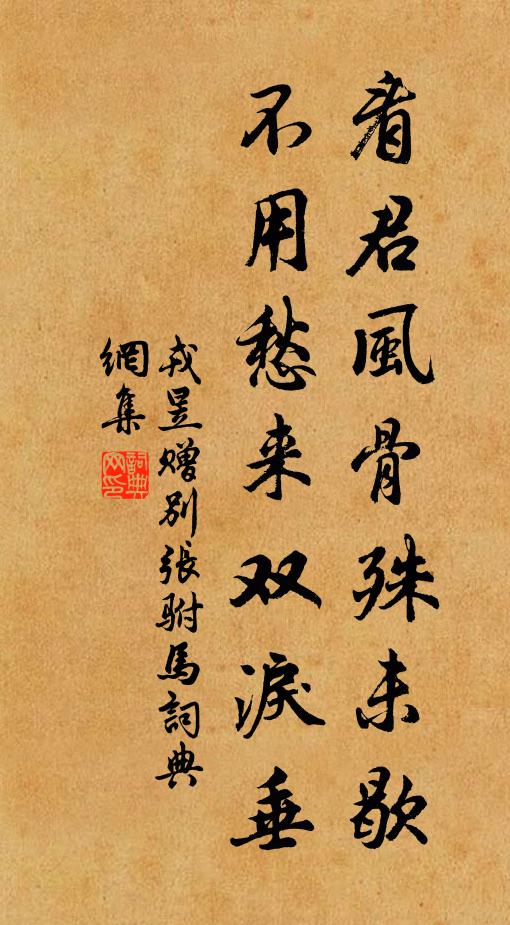 看君風骨殊未歇
不用愁来双淚垂
戎昱贈别張駙馬詞典
網集
詞典网印